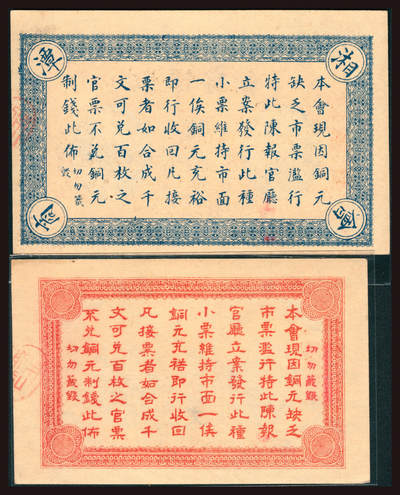 湘
潭
本會現因銅元
缺乏市票濫行
特此陳報官廳
立案發行此種
小票維持市面
一俟銅元充裕
即行收回凡接
票者如合成千
文可兌百枚之
官票不兌銅元
制錢此佈
切勿裁毀
會
切勿裁毀
本會現因銅元缺乏
市票濫行特此陳報
官廳立案發行此種
小票維持市面一俟
銅元充裕即行收回
凡接票者如合成千
文可兌百枚之官票
不兌銅元制錢此佈
切勿裁毀